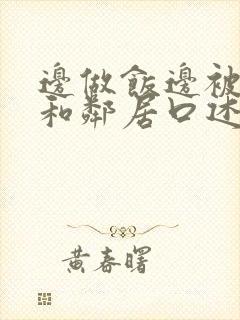 邊做飯邊被
和鄰居口述
黃春曙